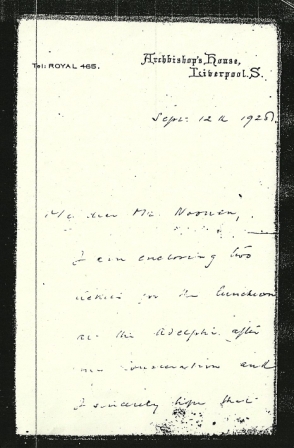 Tel: ROYAL 465.
Archbishop's House,
Liverpool. S.
Sept: 12th 1928
My dear Mr. Noonan,
I am enclosing two
tickets for the luncheon
at the Adelphi after
my consecration and
I sincerely hope that